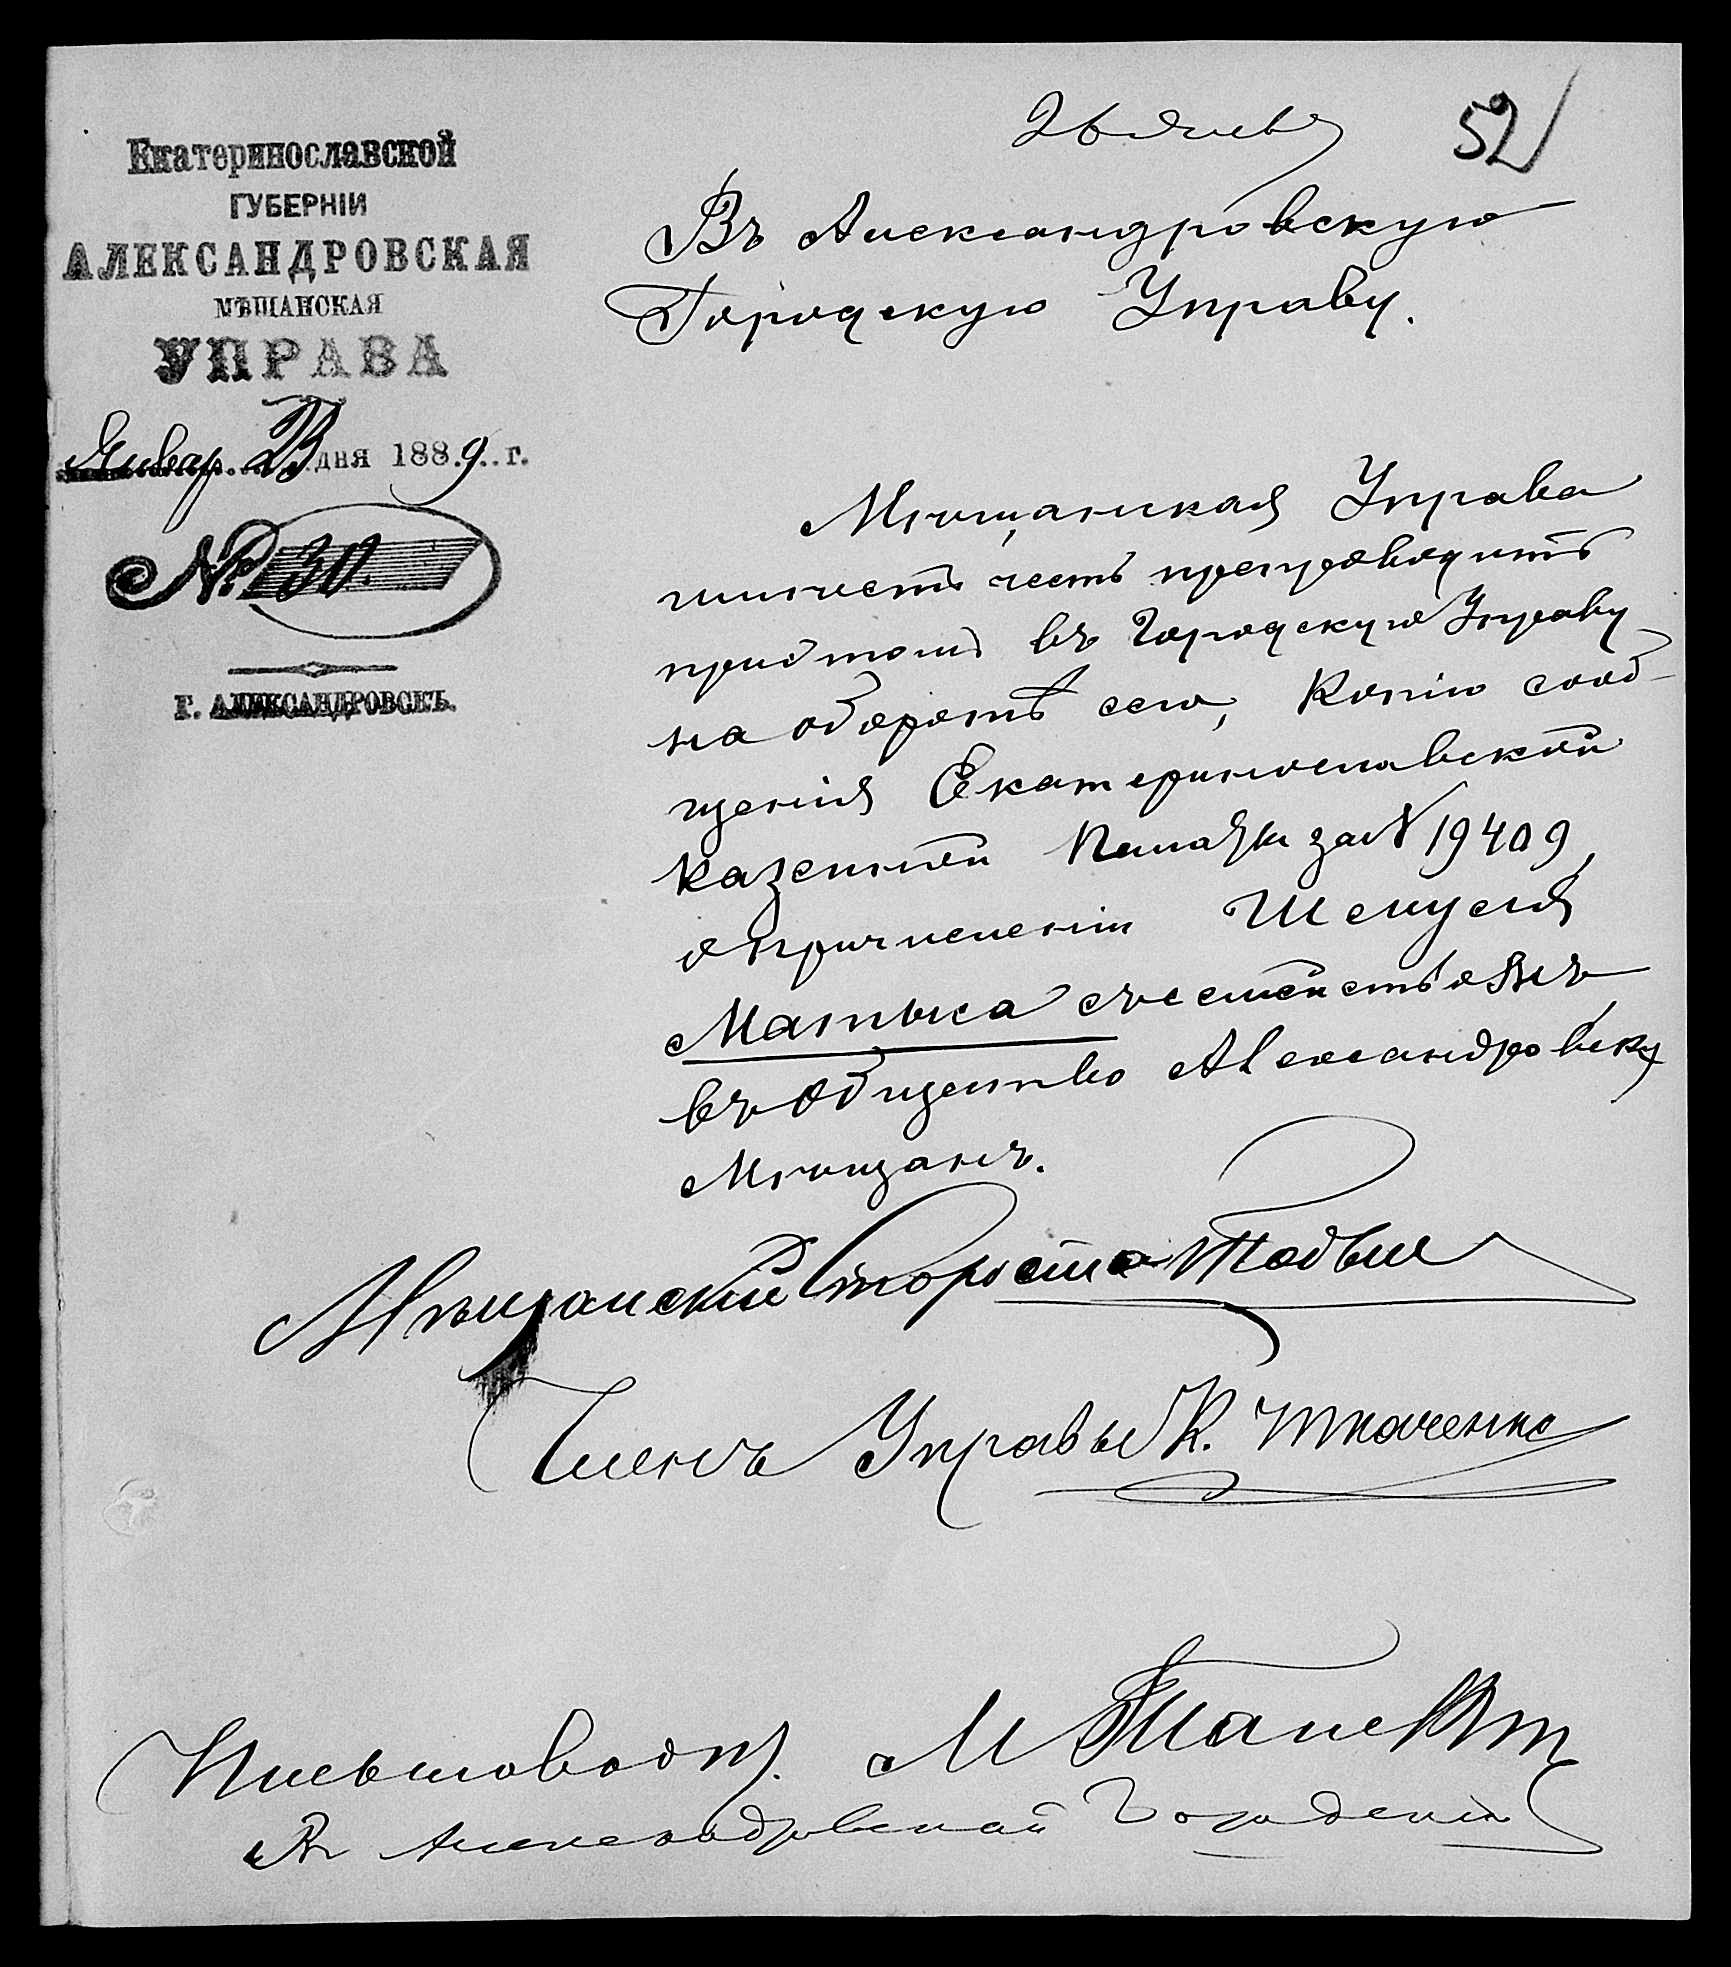 26 Янв
52
Екатеринославской
ГУБЕРНІИ
АЛЕКСАНДРОВСКАЯ
МѢЩАНСКАЯ
УПРАВА
Январ 23 дня 1889 г.
№ 30.
Г. АЛЕКСАНДРОВСКЪ.
Въ Александровскую
Городскую Управу.
Мѣщанская Управа
имѣетъ честь препроводить
при томъ въ Городскую Управу
на оборотѣ сего, Копію сооб-
щенія Екатеринославской
Казенной Палаты за № 19409,
о причисленіи Шемуеля
Матыса съ семействомъ
въ Общество Александровску
Мѣщанъ.
Мѣщанскій Староста
Членъ Управы К. Ткаченко
Письмовод.
Въ Александровской